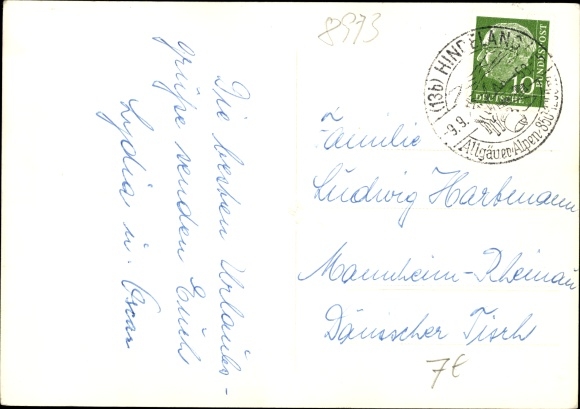 8973
Die besten Urlaubs-
grüße senden Euch
Lydia u. Oscar
(13b) HINDELANG
9.9.
Allgäuer-Alpen-850-
10
DEUTSCHE
BUNDESPOST
Familie
Ludwig Hartmann
Mannheim-Rheinau
Dänischer Tisch
7€